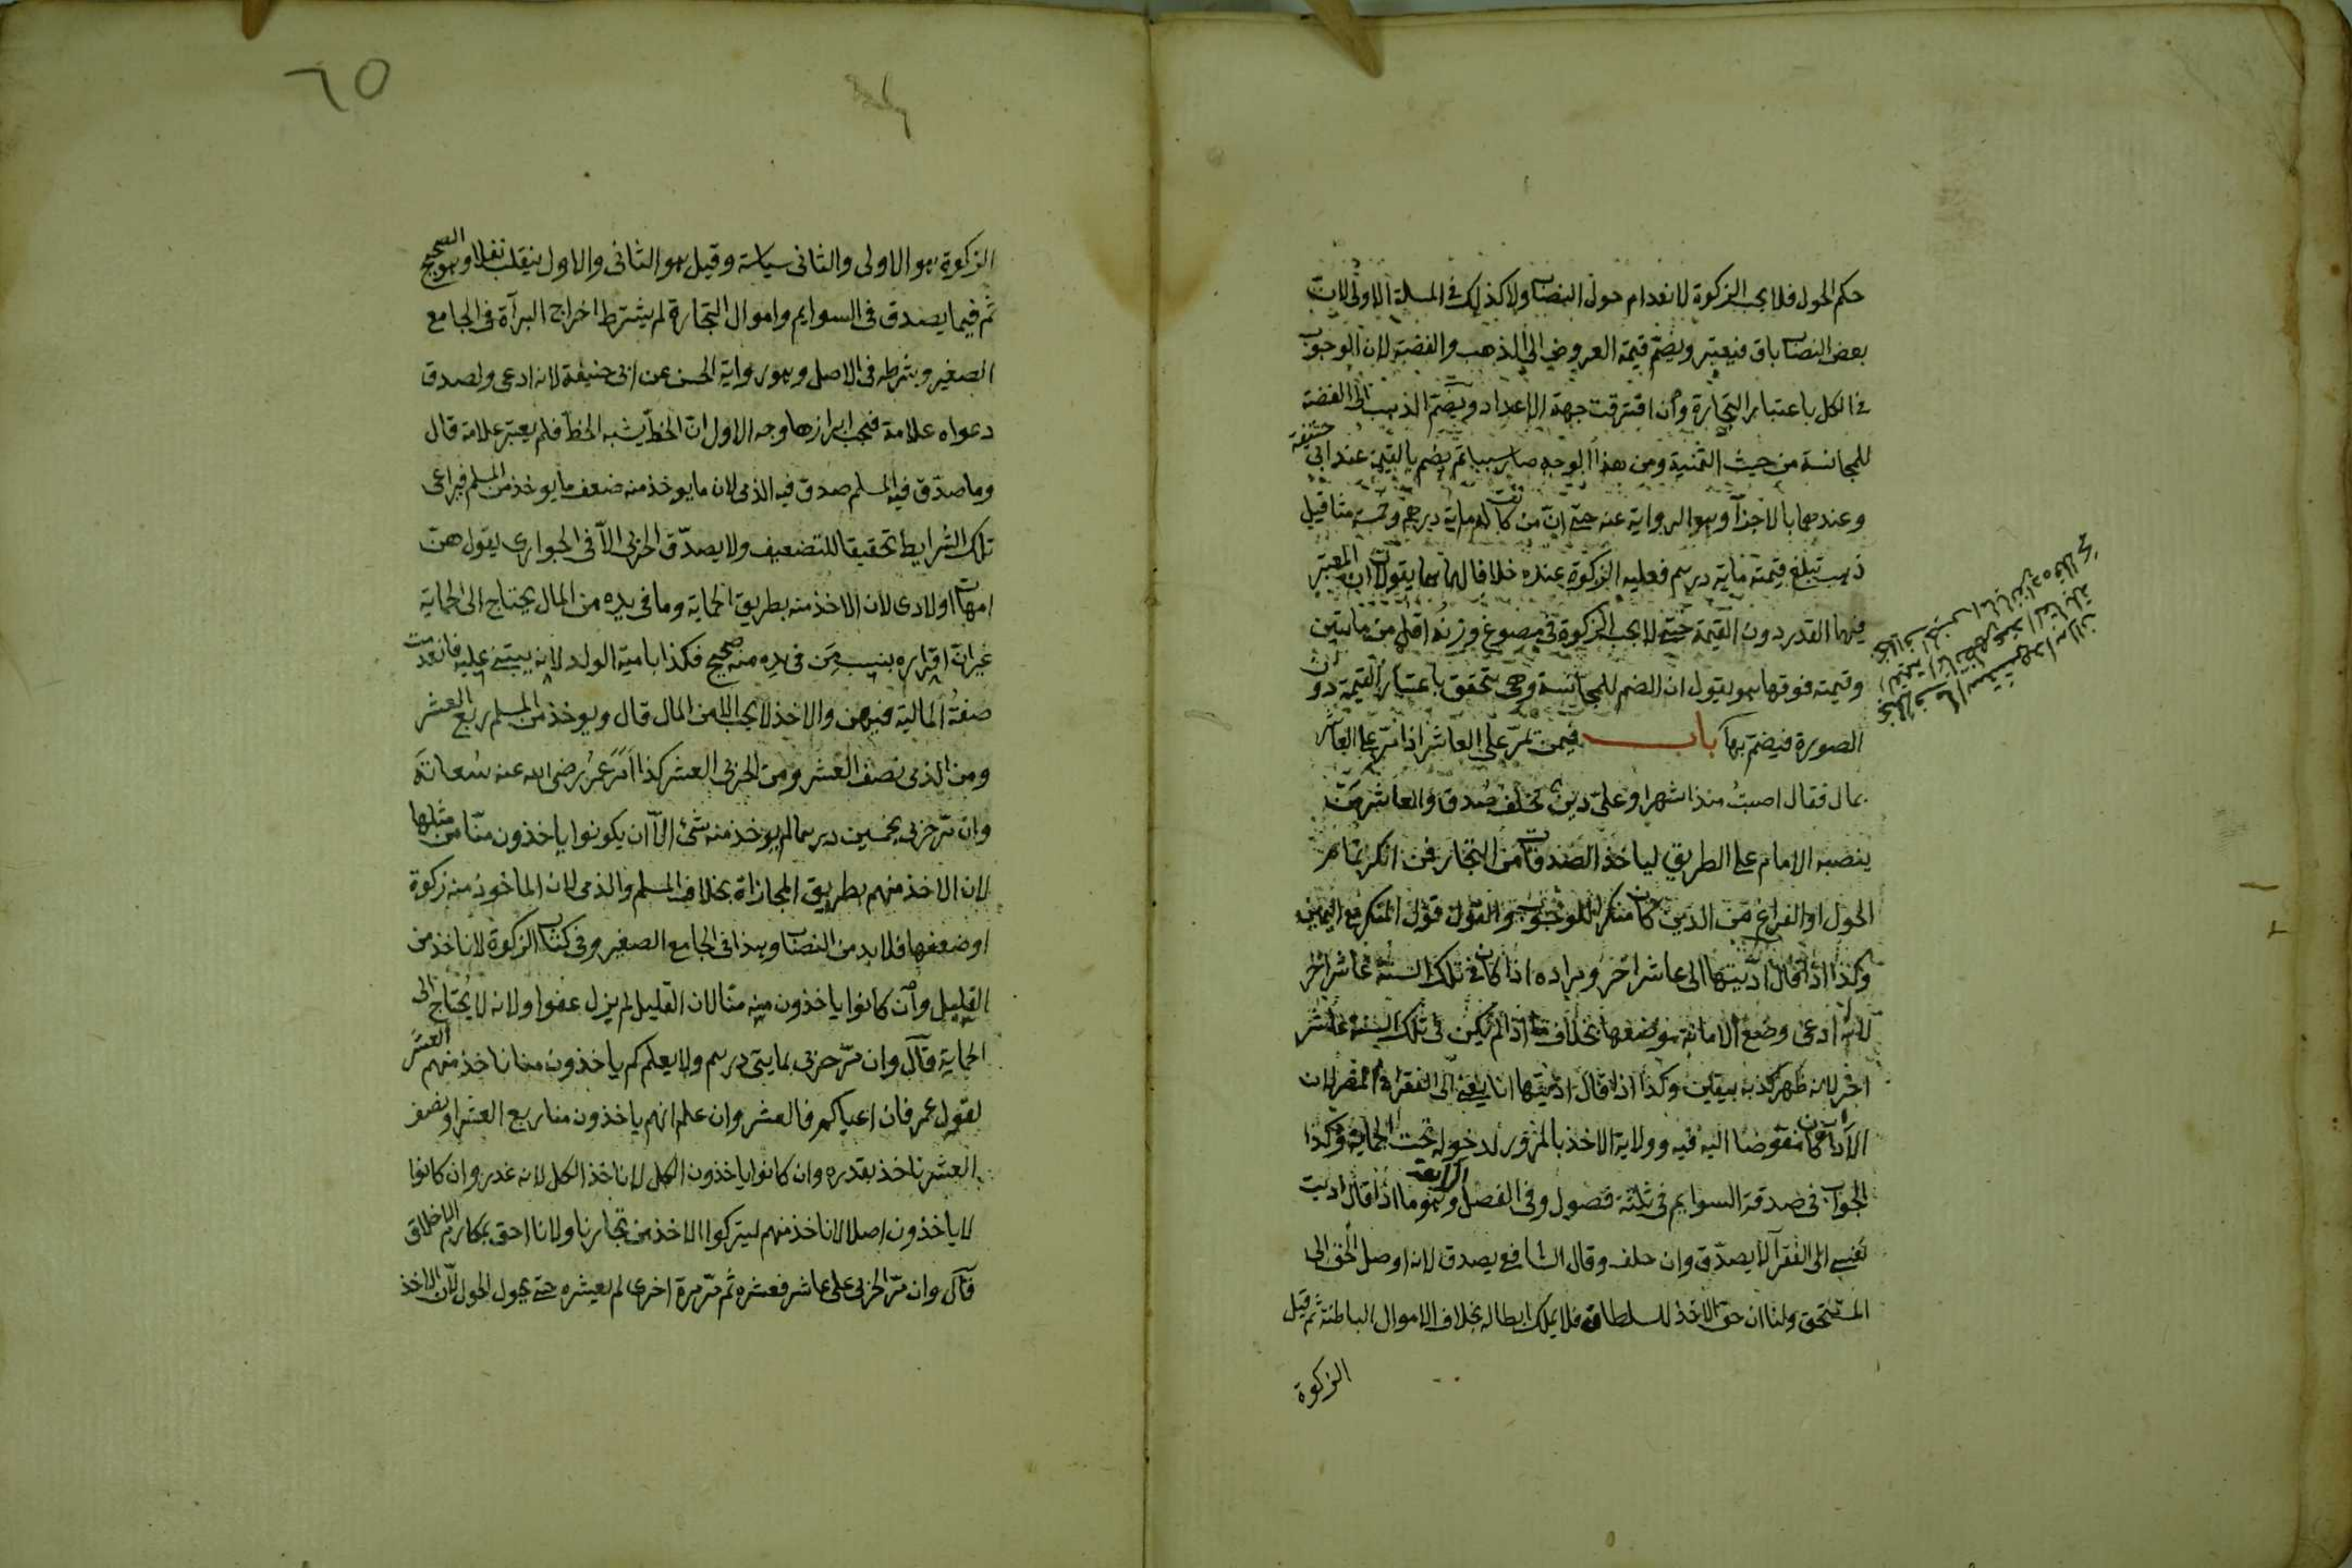 حكم الحول فلا يجب الزكوة لانعدام حول النصاب ولا كذلك في المسلة الاولى لان
بعض النصاب باق فيعتبر ويضم قيمة العروض الى الذهب والفضة لان الوجوب
في الكل باعتبار التجارة وان افترقت جهة الاعداد ويضم الذهب الى الفضة
للمجانسة من حيث الثمنية ومن هذا الوجه صار سببا ثم يضم بالقيمة عند ابي حنيفة
وعندهما بالاجزآ وهو الرواية عنه حتى ان من كانت له ماية درهم وخمسة مثاقيل
ذهب تبلغ قيمته ماية درهم فعليه الزكوة عنده خلافا لهما هما يقولان ان المعتبر
فيهما القدر دون القيمة حتى لا يجب الزكوة في مصوغ وزنه اقل من مايتين
وقيمته فوقها هو يقول ان الضم للمجانسة وهي يتحقق باعتبار القيمة دون
الصورة فيضم بها باب فيمن يمر على العاشر اذا مر على العاشر
بمال فقال اصبت منذ اشهر او علي دين وحلف صدق والعاشر من
ينصبه الامام على الطريق لياخذ الصدقات من التجار فمن انكر تمام
الحول او الفراغ من الدين كان منكرا للوجوب والقول قول المنكر مع اليمين
وكذا اذا قال اديتها الى عاشر اخر ومراده اذا كان في تلك السنة عاشر اخر
لانه ادعى وضع الامانة موضعها بخلاف ما اذا لم يكن في تلك السنة عاشر
اخر لانه ظهر كذبه بيقين وكذا اذا قال اديتها انا يعني الى الفقرا في المصر لان
الادآ كان مفوضا اليه فيه وولاية الاخذ بالمرور لدخوله تحت الحماية وكذا
الجواب في صدقة السوايم في ثلثة فصول وفي الفصل الرابع وهو ما اذا قال اديت
بنفسي الى الفقرآ لا يصدق وان حلف وقال الشافعي يصدق لانه اوصل الحق الى
المستحق ولنا ان حق الاخذ للسلطان فلا يملك ابطاله بخلاف الاموال الباطنة ثم قيل
الزكوة
٦٥
الزكوة هو الاولى والثانى سياسة وقيل هو الثانى والاول ينقلب نفلا وهو الصحيح
ثم فيما يصدق فى السوايم واموال التجارة لم يشترط اخراج البرآة فى الجامع
الصغير وشرطه فى الاصل وهو رواية الحسن عن ابى حنيفة لانه ادعى ولصدق
دعواه علامة فيجب ابرازها وجه الاول ان الخط يشبه الخط فلم يعتبر علامة قال
وما صدق فيه المسلم صدق فيه الذمى لان ما يوخذ منه ضعف ما يوخذ من المسلم فيراعى
تلك الشرايط تحقيقا للتضعيف ولا يصدق الحربى الا فى الجوارى يقول هن
امهات اولادى لان الاخذ منه بطريق الحماية وما فى يده من المال يحتاج الى الحماية
غير ان اقراره بنسب من فى يده منه صحيح فكذا بامية الولد لانه يبتنى عليه فانعدمت
صفة المالية فيهن والاخذ لا يجب الا من المال قال ويوخذ من المسلم ربع العشر
ومن الذمى نصف العشر ومن الحربى العشر كذا امر عمر رضى الله عنه سعاته
وان مر حربى بخمسين درهما لم يوخذ منه شئ الا ان يكونوا ياخذون منا من مثلها
لان الاخذ منهم بطريق المجازاة بخلاف المسلم والذمى لان الماخوذ منه زكوة
او ضعفها فلا بد من النصاب وهذا فى الجامع الصغير وفى كتاب الزكوة لا ناخذ من
القليل وان كانوا ياخذون منه منا لان القليل لم يزل عفوا ولانه لا يحتاج الى
الحماية قال وان مر حربى بمايتى درهم ولا يعلم كم ياخذون منا ناخذ منهم العشر
لقول عمر فان اعياكم فالعشر وان علم انهم ياخذون منا ربع العشر او نصف
العشر ناخذ بقدره وان كانوا ياخذون الكل لا ناخذ الكل لانه غدر وان كانوا
لا ياخذون اصلا لا ناخذ منهم ليتركوا الاخذ من تجارنا ولانا احق بمكارم الاخلاق
قال وان مر الحربى على عاشر فعشره ثم مر مرة اخرى لم يعشره حتى يحول الحول لان الاخذ